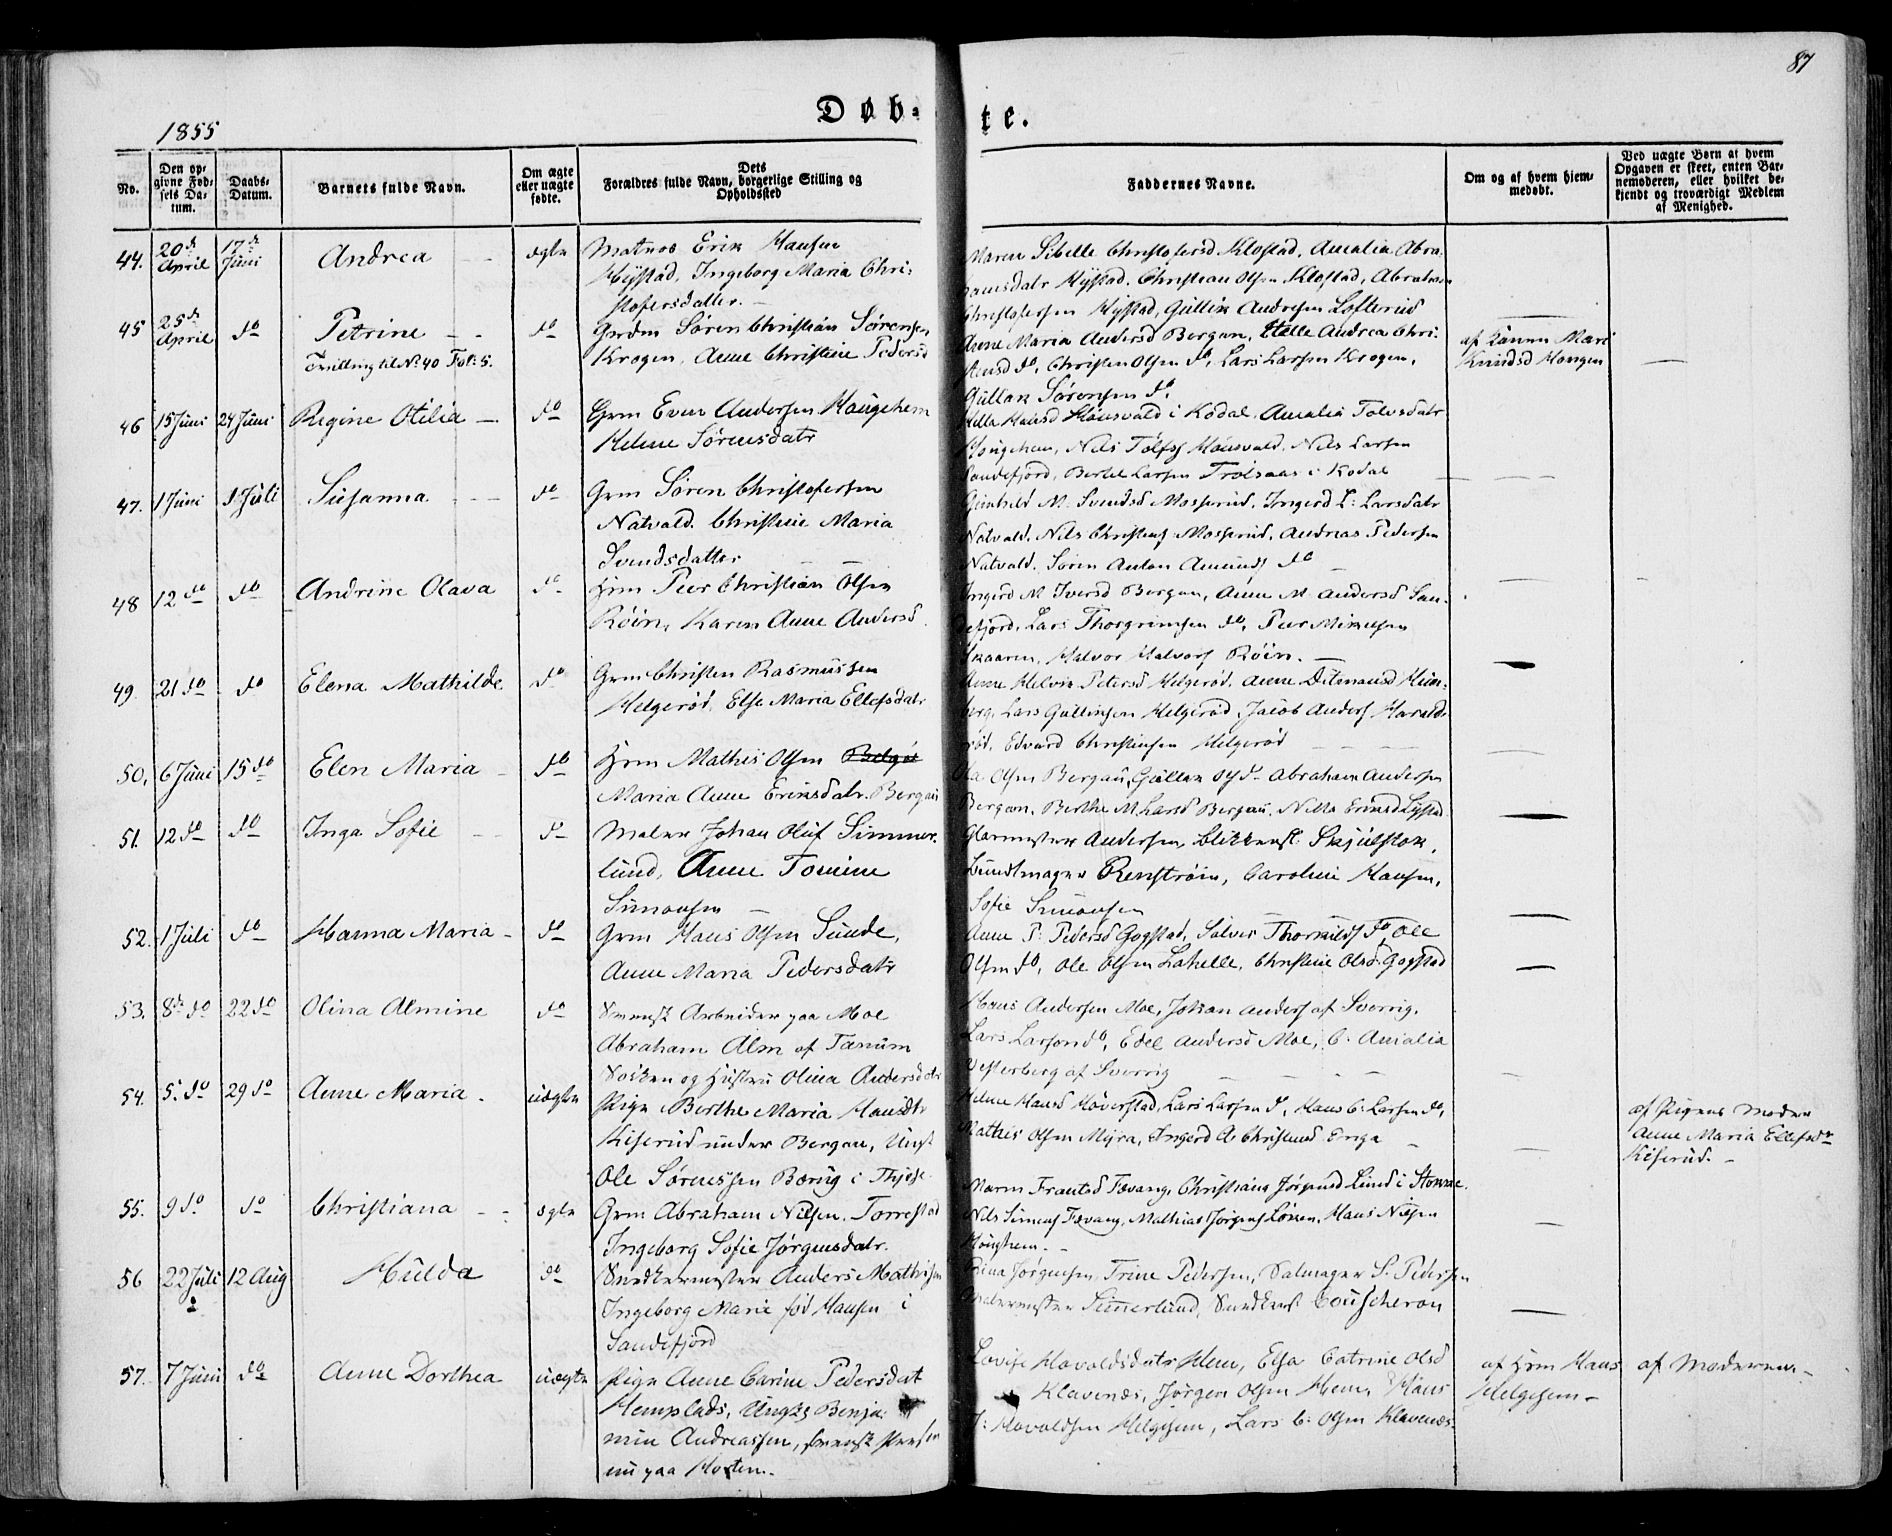 87
Døb-te.
1855
No.
Den op-
givne Fød-
sels Da-
tum.
Daabs-
Datum.
Barnets fulde Navn.
Om ægte
eller uægte
fødte.
Dets
Forældres fulde Navn, borgerlige Stilling og
Opholdssted
Faddernes Navne.
Om og af hvem hjem-
medøbt.
Ved uægte Børn at hvem
Opgaven er skeet, enten Bar-
nemoderen, eller hvilket be-
kjendt og troværdigt Medlem
af Menighed.
44. 20de April 17de Juni Andrea ægte Matros Erik Hansen
Hystad, Ingeborg Maria Chri-
stofersdatter.
Maren Sibelle Christofersd Klostad, Amalia Abra-
hamsdatr Hystad, Christian Olsen Klostad, Abraham
Christofersen Hystad, Gullik Andresen Lofterud
45 25de April do Petrine do Grdm Søren Christian Sørensen
Tvilling til No 40 Fol: 5.
Krogen, Anne Christine Pedersd
Anne Maria Andersd Bergan, Helle Andrea Chri-
stensd do, Christen Olsen do, Lars Larsen Krogen,
Gullak Sørensen do
af Konen Mari
Knudsd Haugen
46 15 Juni 24 Juni Regine Otilia do Grm Even Andersen Haugehem
Helene Sørensdatr
Hella Hansd Hånsvald i Kodal, Amalia Tolvsdatr
Haugehem, Nils Tolfs Hånsvald, Nils Larsen
Sandefjord, Bertel Larsen Trolsaas i Kodal
47. 1 Juni 1 Juli Susanna do Grm Søren Christofersen
Natvald, Christine Maria
Svendsdatter
Gunhild M. Svendsd Mosserud, Ingerd L: Larsdatr
Natvald, Nils Christens Mosserud, Andreas Pedersen
Natvald, Søren Anton Amunds do
48 12 do do Andrine Olava do Hrm Peer Christian Olsen
Røin, Karen Anne Andersd.
Ingerd M Iversd Bergan, Anne M Andersd San-
defjord, Lars Thorgrimsen do, Peer Mikelsen
Skaaren, Halvor Halvors Røin.
49. 21 do do Elena Mathilde do Grm Christen Rasmussen
Helgerød, Else Maria Ellefsdatr
Anne Helvik Petersd Helgerød, Anne Ditmansd Heim-
berg, Lars Gullinsen Helgerød, Jacob Anders Harald-
rød, Edvard Christensen Helgerød
50. 6 Juni 15 do Elen Maria do Hrm Mathis Olsen
Maria Anne Eriksdatr. Bergan
Ola Olsen Bergan, Gullak do Abraham Andersen
Bergan, Berthe M. Larsd Bergan, Nilla Eriksd Lysted
51. 12 do do Inga Sofie do Maler Johan Oluf Simmer-
lund, Anne Tomine
Simonsen
Glarmester Andersen, Blikkensl. Skjulstok,
Bundtmager Renstrøm, Caroline Hansen,
Sofie Simonsen
52. 1 Juli do Hanna Maria do Grm Hans Olsen Sunde,
Anne Maria Pedersdatr
Anne P: Pedersd Gogstad, Salvei Thorkilds do, Ole
Olsen do, Ole Olsen Lahelle, Christine Olsd Gogstad
53. 8de do 22 do Olina Almine do Svensk Arbeider paa Moe
Abraham Alm af Tanum
Sokken og Hustru Olina Andersdatr
Hans Andersen Moe, Johan Anders af Sverrig,
Lars Larson do, Edel Andersd Moe, C. Amalia
Vesterberg af Sverrig
54. 5. do 29 do Anne Maria uægte Pige Berthe Maria Hansdtr
Kiserud under Bergan, Ungk
Ole Sørensen Barug i Thjøse
Helene Hansd Haverstad, Lars Larsen do, Hans C: Larsen do,
Mathis Olsen Myra, Ingerd A Christensd Enga
af Pigens Moder
Anne Maria Ellefsdr
Kiserud.
55. 9 do do Christiana ægte Grm Abraham Nilsen, Torrestad
Ingeborg Sofie Jørgensdatr.
Maren Frantsd Tævang, Christiana Jørgensd Lund i Stokke
Nils Simens Tævang, Mathias Jørgens Løken, Hans Nilsen
Haughem.
56 22 Juli 12 Aug Hulda do Snedkermester Anders Mathisen
Ingeborg Marie fød Hansen i
Sandefjord
Trine Pedersen, Salmager S. Pedersen
Malermester Simerlund, Snedkersv. Couscheron
57. 7 Juni do Anne Dorthea uægte Pige Anne Carine Pedersdat
Hemplads, Ungk Benja-
min Andreassen, svensk
nu paa Horten.
Lovise Havaldsdatr Hem, Elsa Catrine Olsd
Klavenæs, Jørgen Olsen Hem, Hans
J: Havaldsen Helgehem, Lars C: Olsen Klavenæs
af Hrm Hans
Helgehem
af Moderen